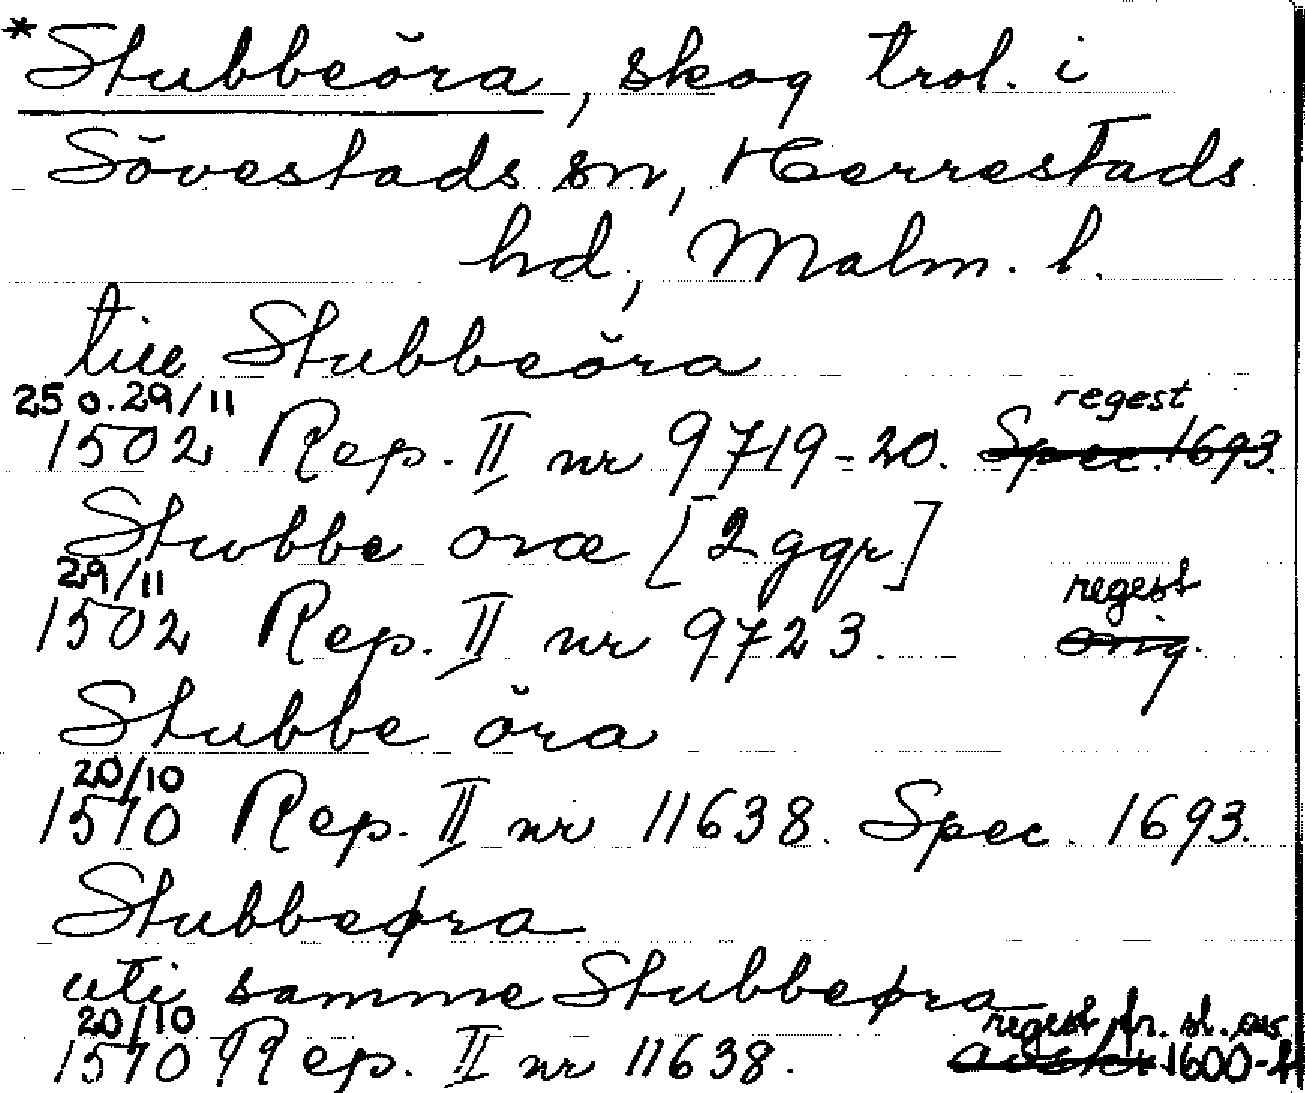 *Stubbeöra, skog trol. i
Sövestads sn, Herrestads
hd, Malm. l.
till Stubbeöra
25 o. 29/11 regest
1502 Rep. II nr 9719-20. Spec. 1693.
Stubbe oræ [2 ggr]
29/11 regest
1502 Rep. II nr 9723. orig.
Stubbe öra
20/10
1510 Rep. II nr 11638. Spec. 1693.
Stubbeøra
uti samme Stubbeøra
20/10 regest fr. sl. av
1510 Rep. II nr 11638. 1600-t